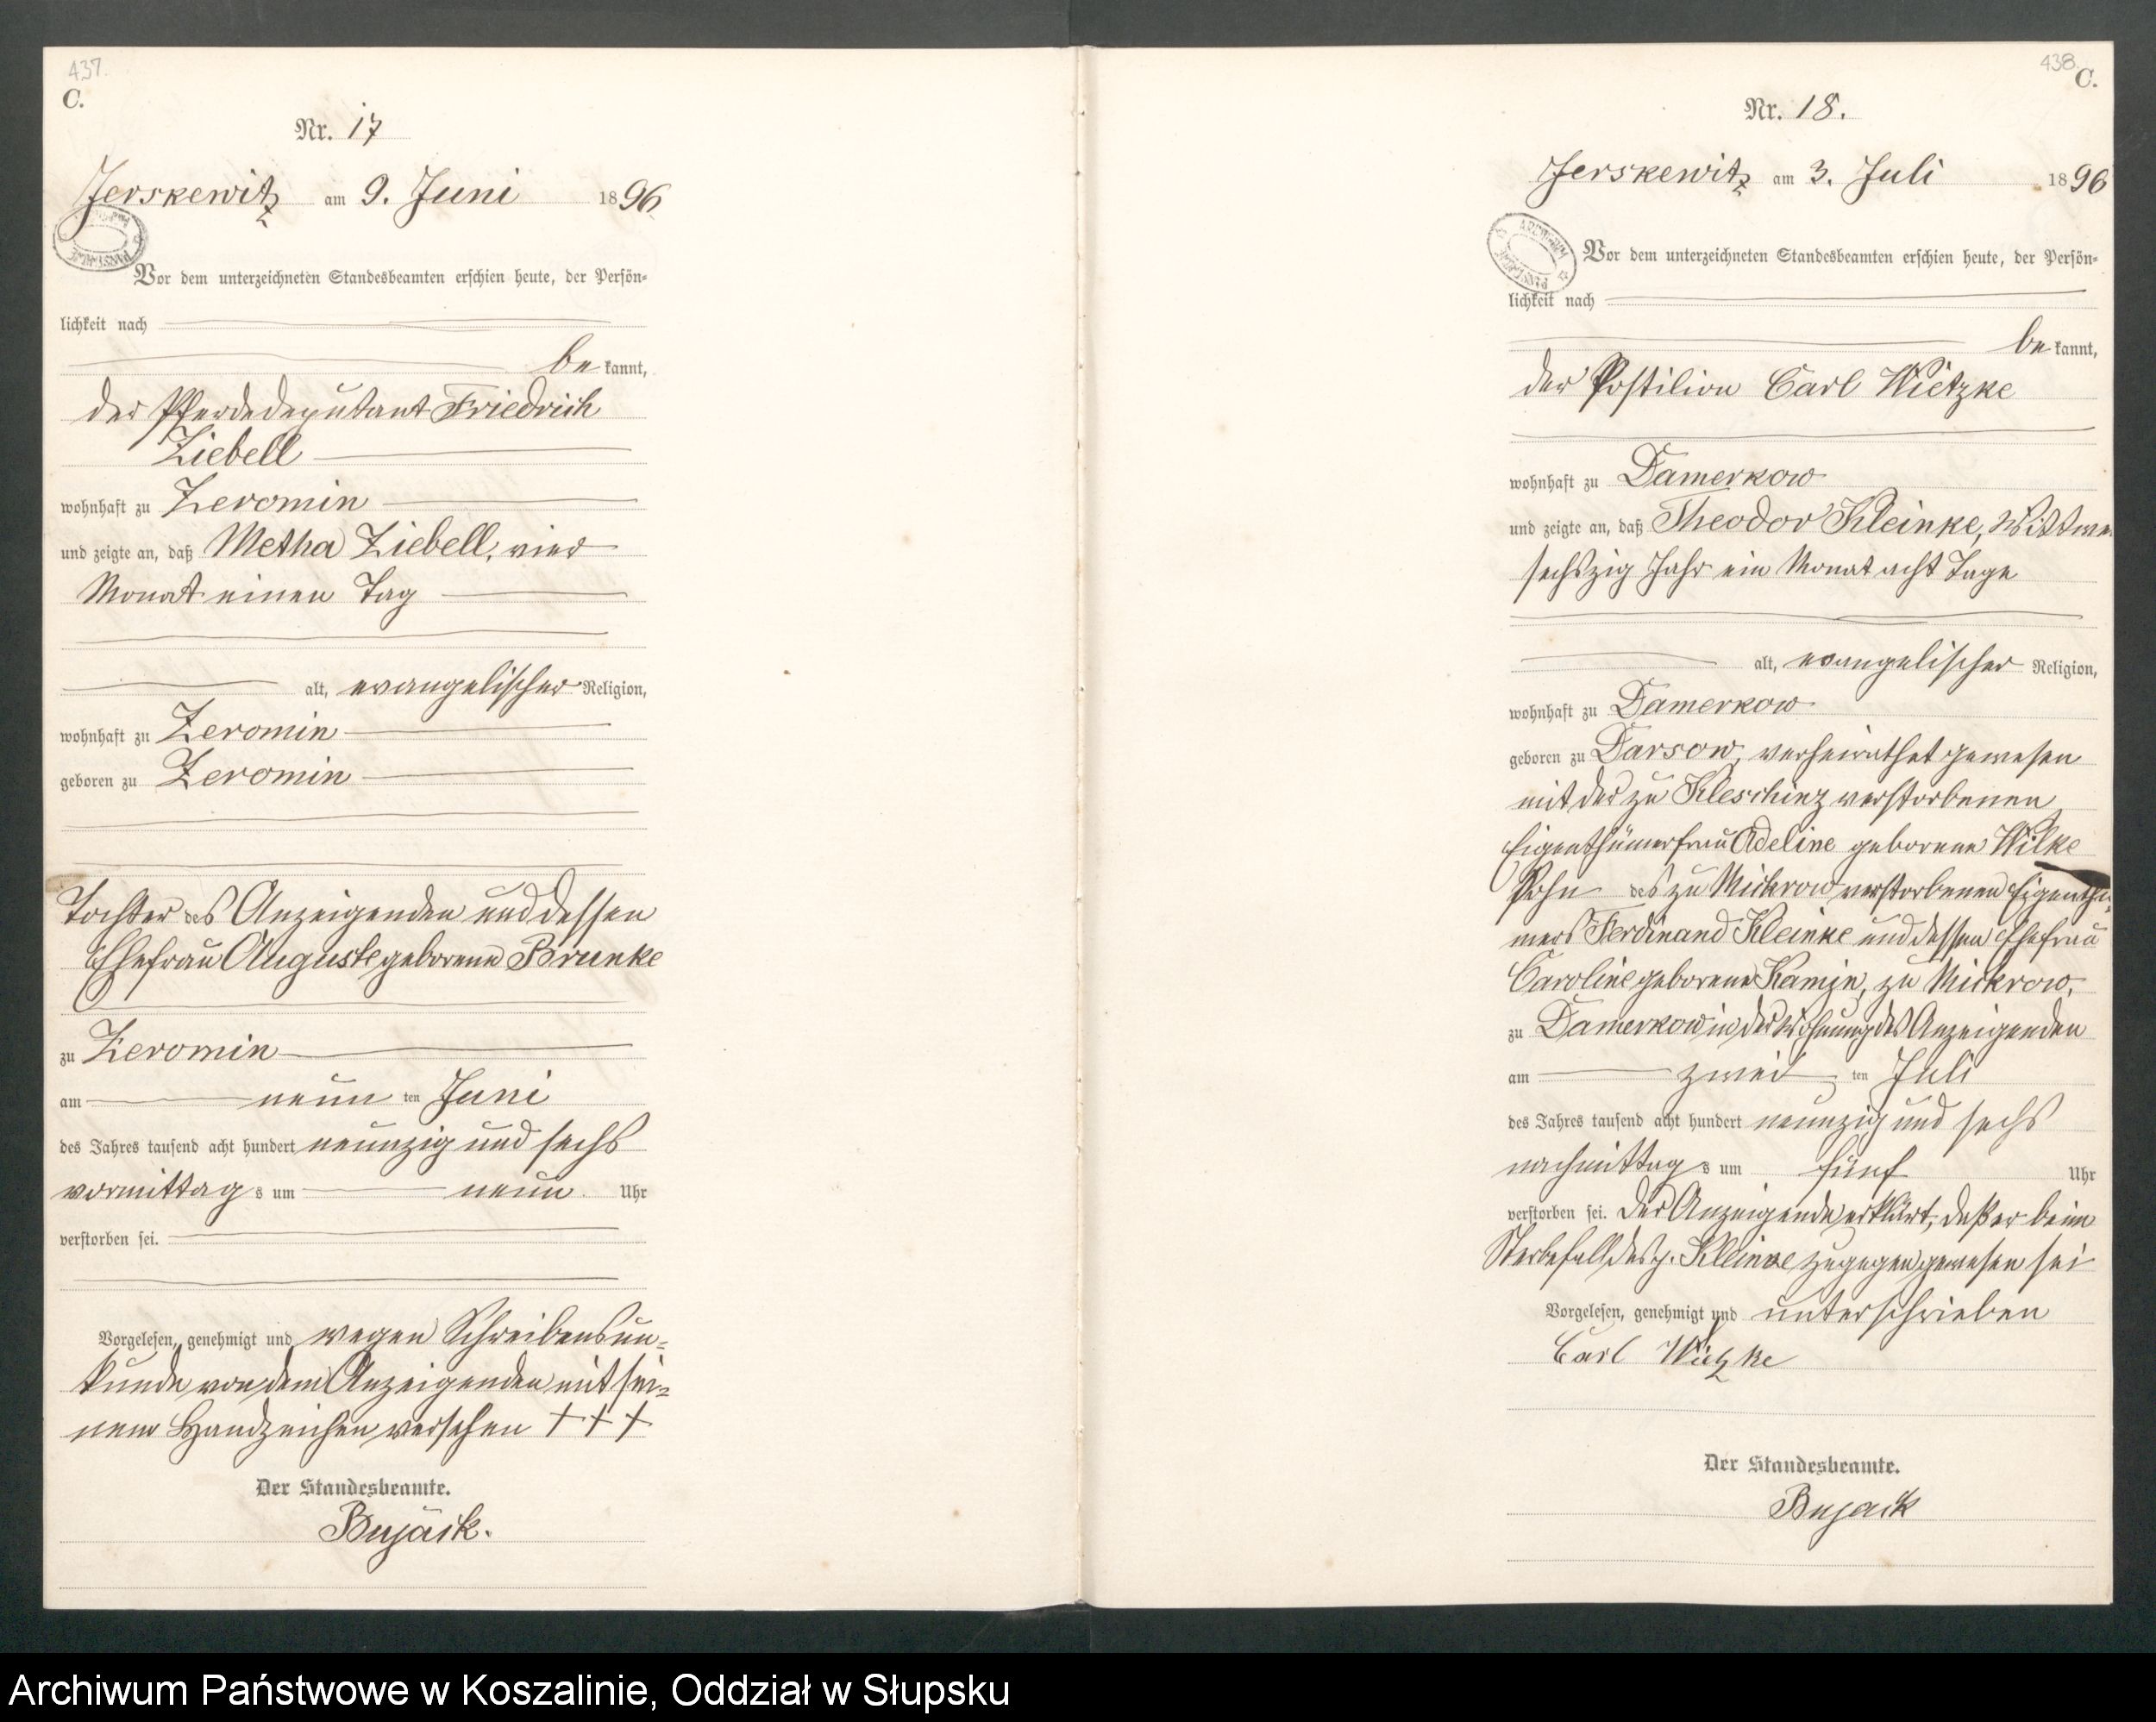 437.
C.
Nr. 17
Jerskewitz am 9. Juni 1896
Vor dem unterzeichneten Standesbeamten erschien heute, der Persön-
lichkeit nach
be kannt,
der Pferdedeputant Friedrich
Ziebell
wohnhaft zu Zeromin
und zeigte an, daß Metha Ziebell, vier
Monat einen Tag
alt, evangelischer Religion,
wohnhaft zu Zeromin
geboren zu Zeromin
Tochter des Anzeigenden und dessen
Ehefrau Auguste geborene Brunke
zu Zeromin
am neun ten Juni
des Jahres tausend acht hundert neunzig und sechs
vormittag s um neun Uhr
verstorben sei.
Vorgelesen, genehmigt und wegen Schreibensun-
kunde von dem Anzeigenden mit sei-
nem Handzeichen versehen + + +
Der Standesbeamte.
Bujack.
438.
C.
Nr. 18.
Jerskewitz am 3. Juli 1896
ARCHIWUM
Vor dem unterzeichneten Standesbeamten erschien heute, der Persön-
lichkeit nach
be kannt,
der Postilion Carl Wietzke
wohnhaft zu Damerkow
und zeigte an, daß Theodor Kleinke, Wittwer
sechszig Jahr ein Monat acht Tage
alt, evangelischer Religion,
wohnhaft zu Damerkow
geboren zu Darsow, verheirathet gewesen
mit der zu Kleschinz verstorbenen
Eigenthümerfrau Adeline geborene Wilke
Sohn des zu Mickrow verstorbenen Eigenthü-
mers Ferdinand Kleinke und dessen Ehefrau
Caroline geborene zu Mickrow,
zu Damerkow in der Wohnung des Anzeigenden
am zwei ten Juli
des Jahres tausend acht hundert neunzig und sechs
nachmittag s um fünf Uhr
verstorben sei. Der Anzeigende erklärt, daß er beim
Sterbefall des p. Kleinke zugegen gewesen sei
Vorgelesen, genehmigt und unterschrieben
Carl Wietzke
Der Standesbeamte.
Bujack
Archiwum Państwowe w Koszalinie, Oddział w Słupsku